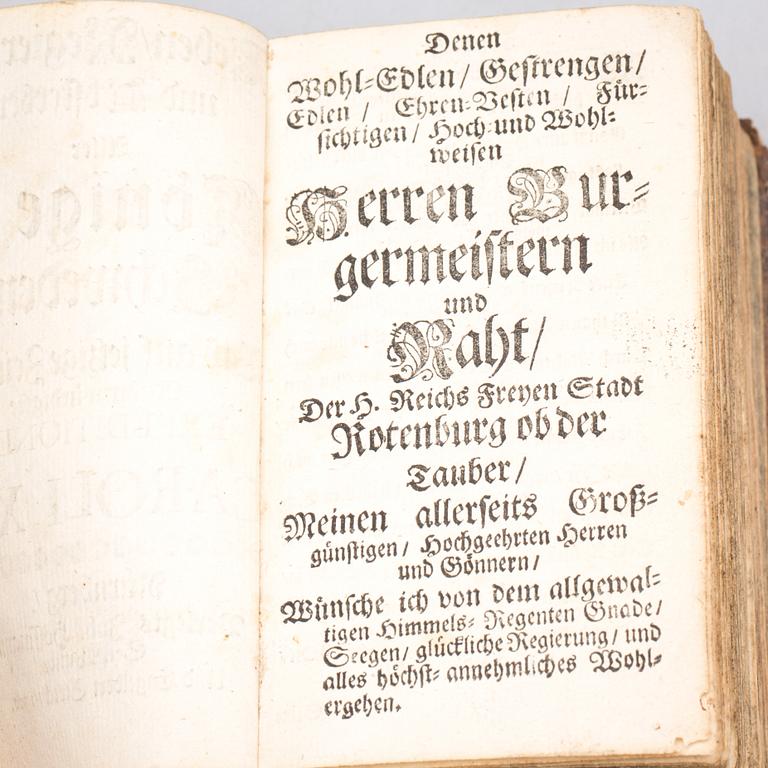 Denen
Wohl-Edlen/ Gestrengen/
Edlen / Ehren-Vesten / Für-
sichtigen/ Hoch-und Wohl-
weisen
Herren Bur-
germeistern
und
Raht/
Der H. Reichs Freyen Stadt
Rotenburg ob der
Tauber/
Meinen allerseits Groß-
günstigen/ Hochgeehrten Herren
und Gönnern/
Wünsche ich von dem allgewal-
tigen Himmels-Regenten Gnade/
Seegen/ glückliche Regierung/ und
alles höchst-annehmliches Wohl-
ergehen.